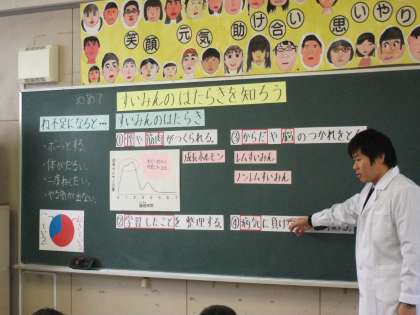 笑顔 元気 助け合い 思いやり
めあて
すいみんのはたらきを知ろう
ね不足になると…
・ボーっとする。
・体がだるい。
・二度ねしたい。
・やる気が出ない。
すいみんのはたらき
①骨や筋肉がつくられる。
成長ホルモン
②学習したことを整理する。
③からだや脳のつかれをと
レムすいみん
ノンレムすいみん
④病気に負け